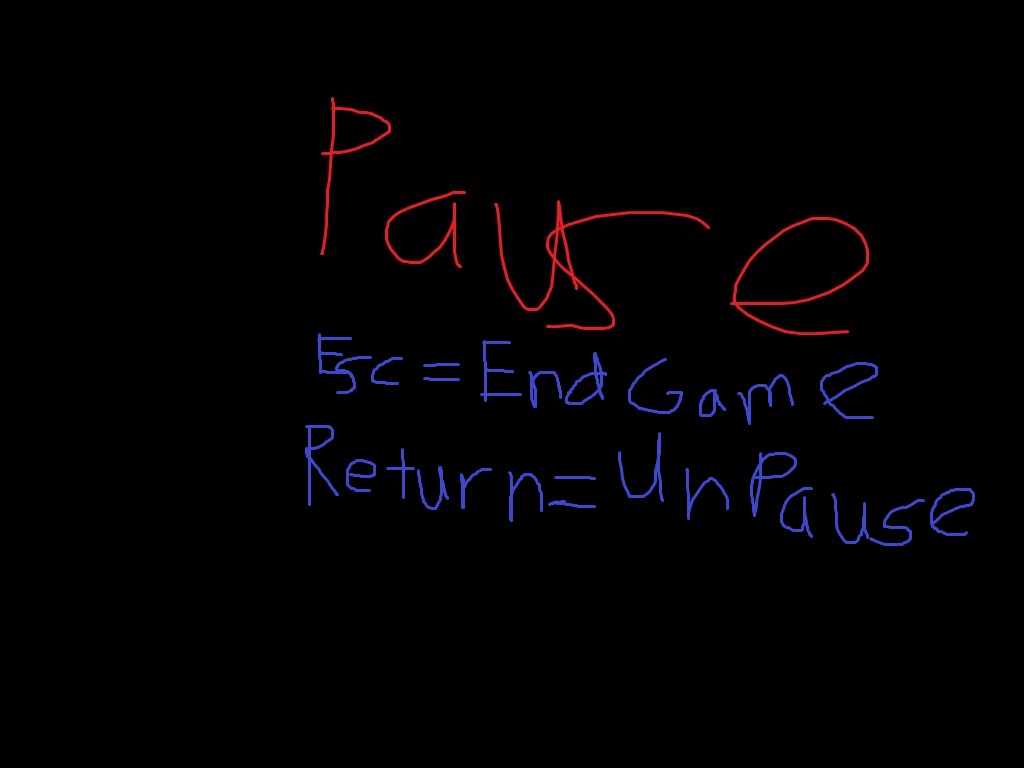 Pause
Esc=EndGame
Return=UnPause